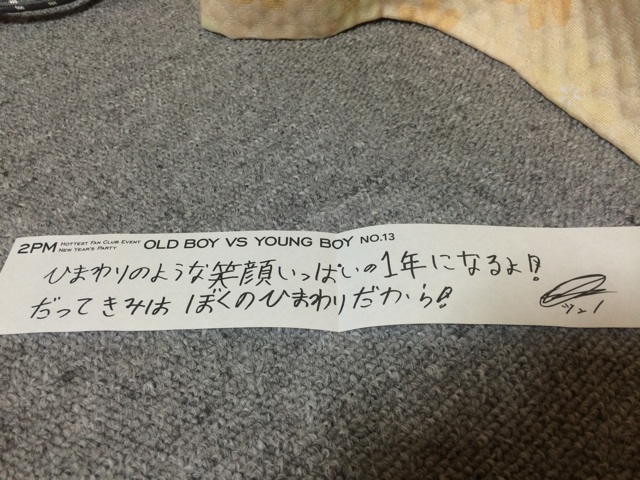 2PM HOTTEST FAN CLUB EVENT NEW YEAR'S PARTY OLD BOY VS YOUNG BOY NO.13
ひまわりのような笑顔いっぱいの1年になるよ!!
だってきみは ぼくのひまわりだから!!